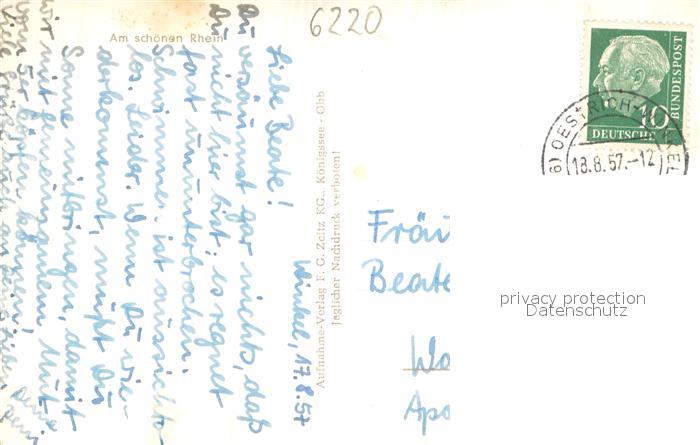 6220
Am schönen Rhein
Winkel, 17.8.57
Liebe Beate!
Du versäumst gar nichts, daß
Du nicht hier bist; es regnet
fast ununterbrochen.
Schwimmen ist aussichts-
los. Leider. Wenn Du wie-
derkommst, mußt Du
Sonne mitbringen, damit
wir mit
können!
Aufnahme-Verlag F. G. Zeitz KG., Königssee-Obb
Jeglicher Nachdruck verboten!
DEUTSCHE BUNDESPOST
10
OESTRICH-WINKEL
18.8.57.-12
Fräu
Beate
Apo
privacy protection
Datenschutz